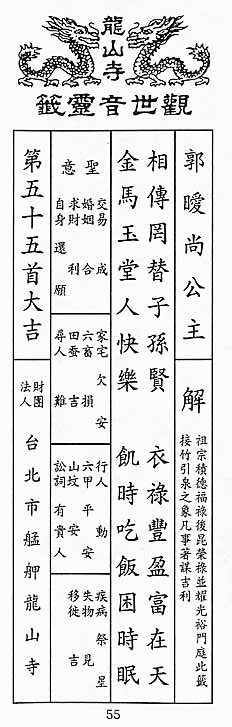 龍山寺
觀世音靈籤
郭曖尚公主
解
祖宗積德福祿後昆榮祿並耀光裕門庭此籤
接竹引泉之象凡事著謀吉利
相傳罔替子孫賢
衣祿豐盈富在天
金馬玉堂人快樂
飢時吃飯困時眠
聖意
交易 成
婚姻 合
求財 利
自身 還願
家宅 欠安
六畜 損
田蚕 吉
尋人 難
行人 動
六甲 平安
山坟 吉
訟詞 有貴人
疾病 祭星
失物 見
移徙 吉
第五十五首大吉
財團
法人
台北市艋舺龍山寺
55